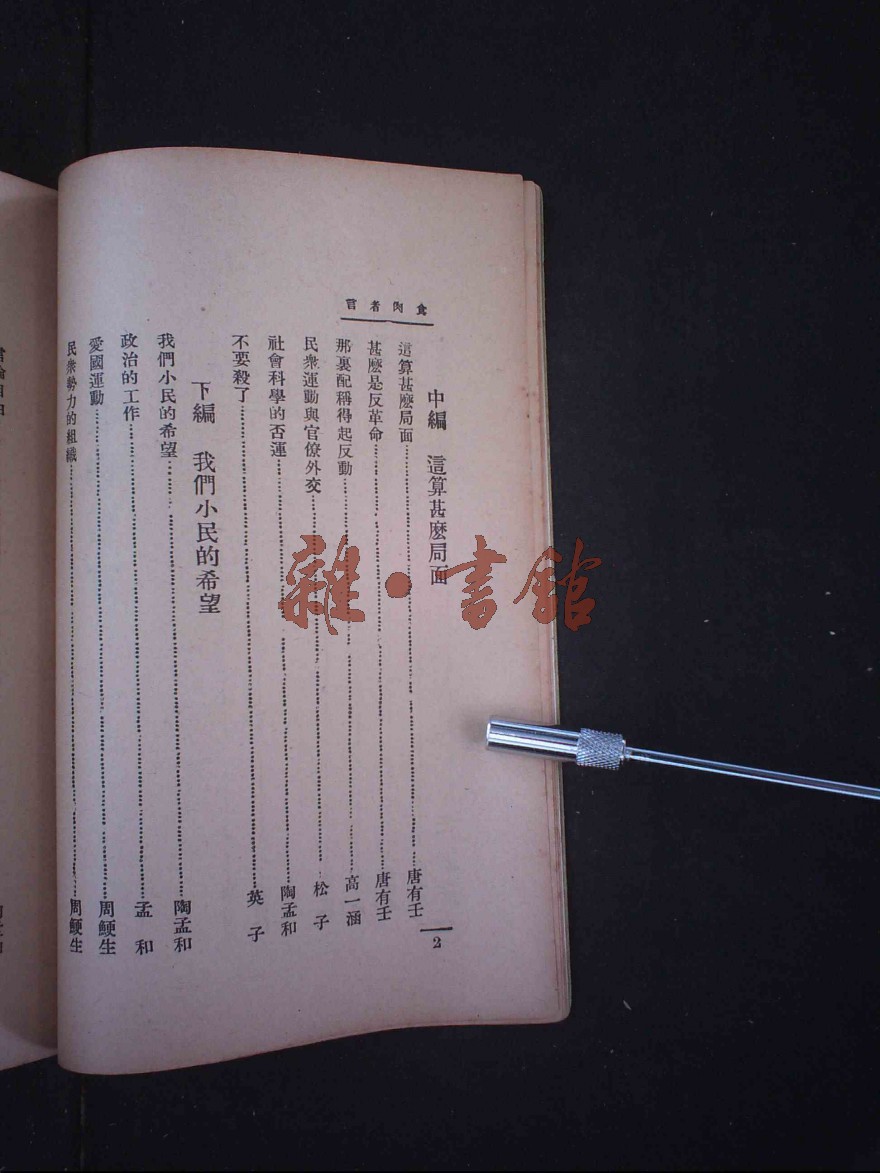 食肉者言
中編　這算甚麽局面
這算甚麽局面⋯⋯唐有壬
甚麽是反革命⋯⋯唐有壬
那裏配稱得起反動⋯⋯高一涵
民衆運動與官僚外交⋯⋯松子
社會科學的否運⋯⋯陶孟和
不要殺了⋯⋯英子
下編　我們小民的希望
我們小民的希望⋯⋯陶孟和
政治的工作⋯⋯孟和
愛國運動⋯⋯周鯁生
民衆勢力的組織⋯⋯周鯁生
2
雜·書館